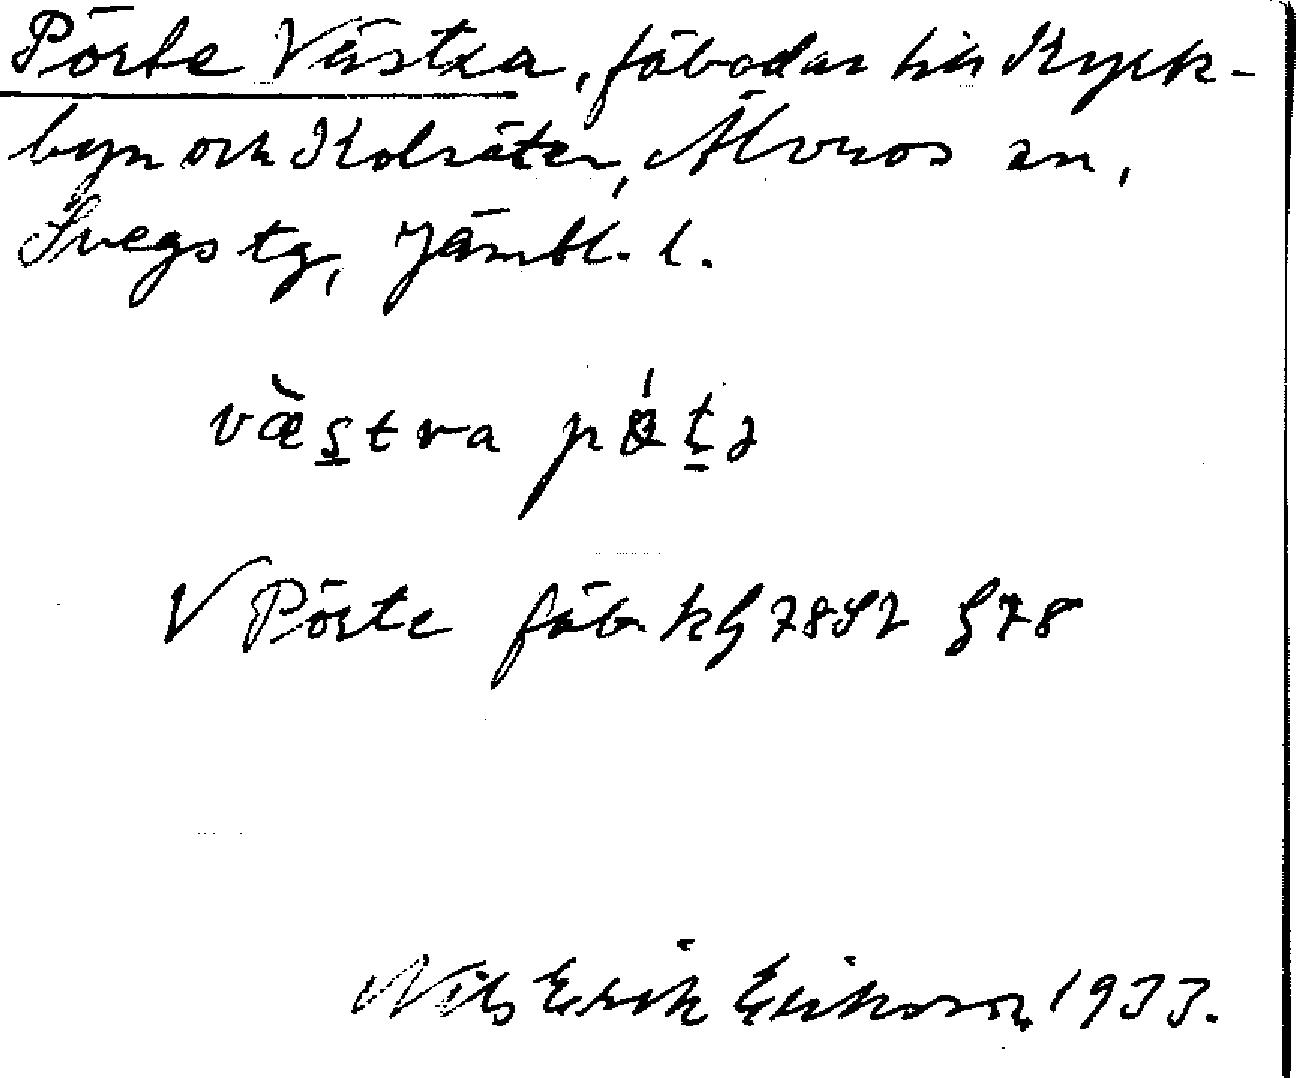 Pörte Västra, fäbodar till Kyrk-
byn och Kolsätter, Älvros sn,
Svegs tg, Jämtl. l.
væ̀stra pǿtə
V Pörte fäb. kg 7897 § 78
Nils Erik Eriksson 1933.